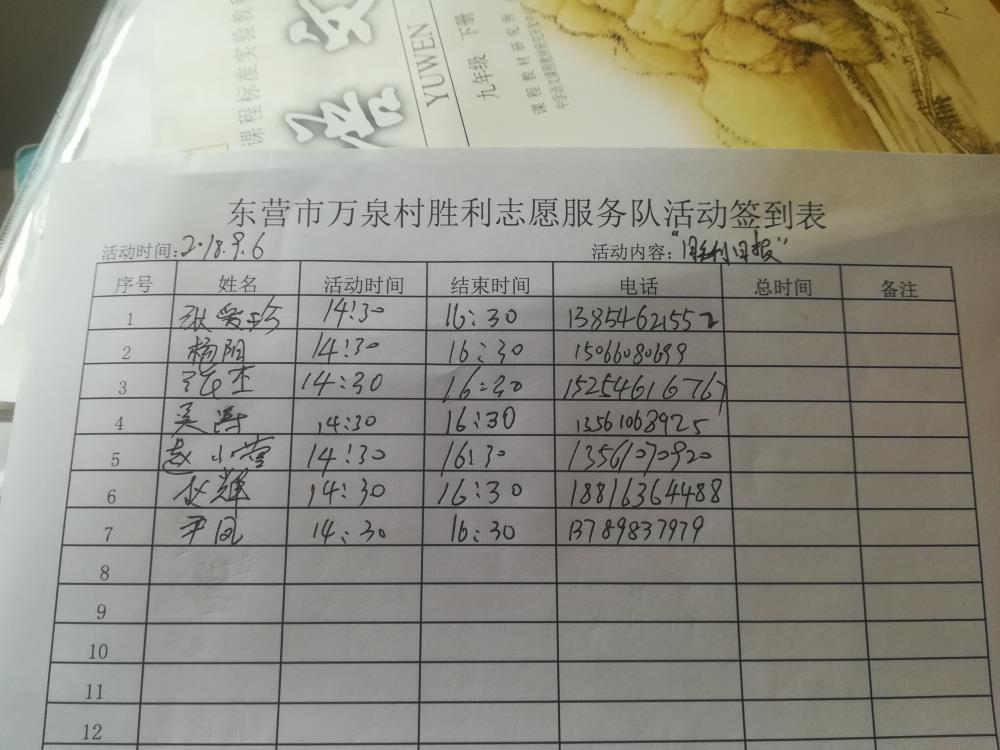 课程标准实验教科
语文
YUWEN
九年级 下册
课程教材研究所
东营市万泉村胜利志愿服务队活动签到表
活动时间:2018.9.6 活动内容:"胜利日报"
序号 姓名 活动时间 结束时间 电话 总时间 备注
1 张爱玲 14:30 16:30 13854621552
2 杨阳 14:30 16:30 15066080699
3 张杰 14:30 16:30 15254616767
4 吴涛 14:30 16:30 13561068925
5 赵小营 14:30 16:30 13561070920
6 赵辉 14:30 16:30 18816364488
7 尹凤 14:30 16:30 13789837979
8
9
10
11
12